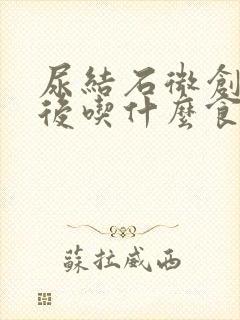 尿結石微創
後喫什麼食
蘇拉威西